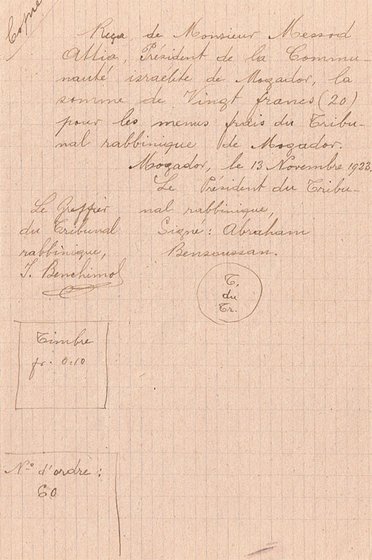 Copie
Reçu de Monsieur Messod
Attia, Président de la Commu-
nauté israelite de Mogador, la
somme de Vingt francs (20)
pour les menus frais du Tribu-
nal rabbinique de Mogador.
Mogador, le 13 Novembre 1923.
Le Président du Tribu-
nal rabbinique,
Signé: Abraham
Bensoussan.
Le Greffier
du Tribunal
rabbinique,
I. Benchimol
T.
du
Tr.
Timbre
fr: 0.10
N° d'ordre:
60